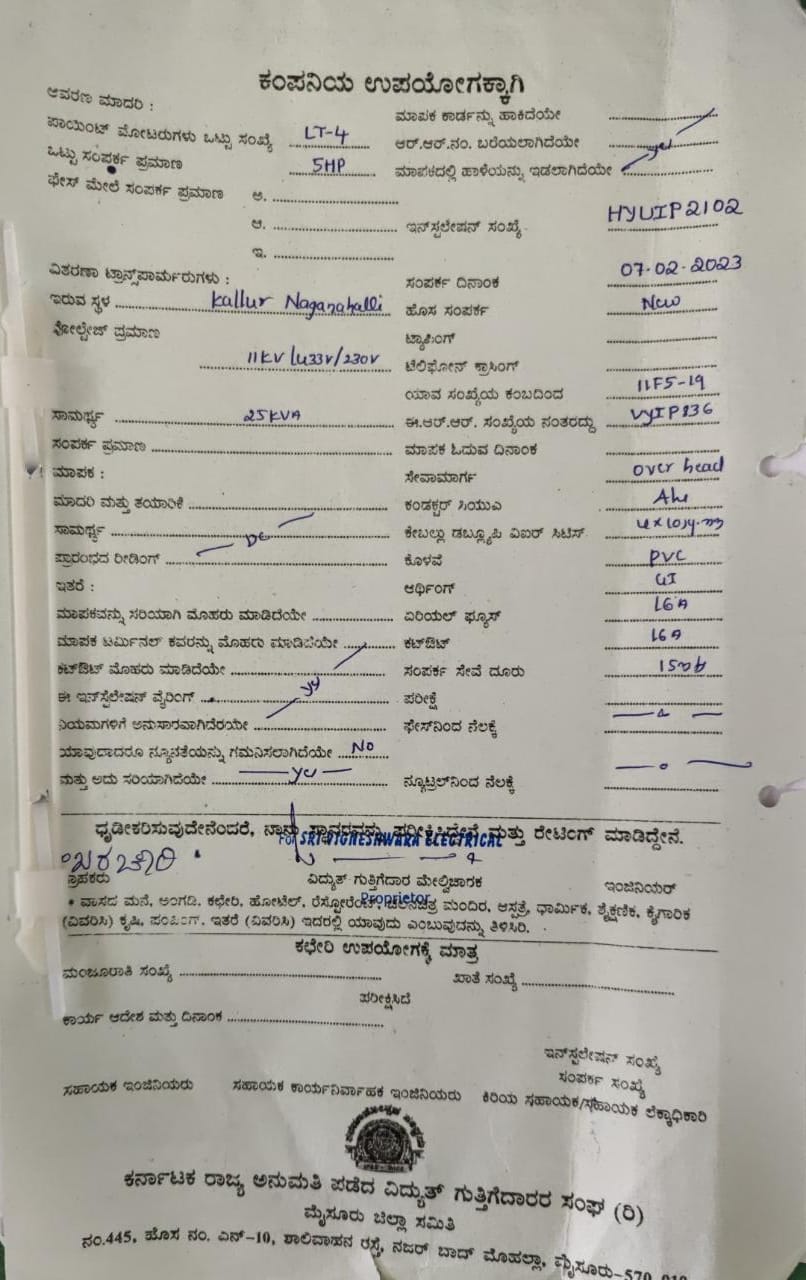 ಕಂಪನಿಯ ಉಪಯೋಗಕ್ಕಾಗಿ
ಆವರಣ ಮಾದರಿ :
ಮಾಪಕ ಕಾರ್ಡನ್ನು ಹಾಕಿದೆಯೇ
ಪಾಯಿಂಟ್ ಮೋಟರುಗಳು ಒಟ್ಟು ಸಂಖ್ಯೆ LT-4 ಆರ್.ಆರ್.ನಂ. ಬರೆಯಲಾಗಿದೆಯೇ
ಒಟ್ಟು ಸಂಪರ್ಕ ಪ್ರಮಾಣ 5HP ಮಾಪಕದಲ್ಲಿ ಹಾಳೆಯನ್ನು ಇಡಲಾಗಿದೆಯೇ yes
ಫೇಸ್ ಮೇಲೆ ಸಂಪರ್ಕ ಪ್ರಮಾಣ ಅ.
ಆ. ಇನ್‌ಸ್ಟಲೇಷನ್ ಸಂಖ್ಯೆ HYUIP2102
ಇ.
ವಿತರಣಾ ಟ್ರಾನ್ಸ್‌ಪಾರ್ಮರುಗಳು : ಸಂಪರ್ಕ ದಿನಾಂಕ 07-02-2023
ಇರುವ ಸ್ಥಳ Kallur Naganahalli ಹೊಸ ಸಂಪರ್ಕ New
ವೋಲ್ಟೇಜ್ ಪ್ರಮಾಣ ಟ್ಯಾಪಿಂಗ್
11KV/433V/230V ಟೆಲಿಫೋನ್ ಕ್ರಾಸಿಂಗ್
ಯಾವ ಸಂಖ್ಯೆಯ ಕಂಬದಿಂದ 11F5-19
ಸಾಮರ್ಥ್ಯ 25KVA ಈ.ಆರ್.ಆರ್. ಸಂಖ್ಯೆಯ ನಂತರದ್ದು VYIP836
ಸಂಪರ್ಕ ಪ್ರಮಾಣ ಮಾಪಕ ಓದುವ ದಿನಾಂಕ
ಮಾಪಕ : ಸೇವಾಮಾರ್ಗ over head
ಮಾದರಿ ಮತ್ತು ತಯಾರಿಕೆ ಕಂಡಕ್ಟರ್ ಸಿಯುಎ
ಸಾಮರ್ಥ್ಯ ಕೇಬಲ್ಲು ಡಬ್ಲ್ಯೂಪಿ ವಿಐರ್ ಸಿಟಿಸ್
ಪ್ರಾರಂಭದ ರೀಡಿಂಗ್ ಕೊಳವೆ PVC
ಇತರೆ : ಆರ್ಥಿಂಗ್ GI
ಮಾಪಕವನ್ನು ಸರಿಯಾಗಿ ಮೊಹರು ಮಾಡಿದೆಯೇ ಏರಿಯಲ್ ಫ್ಯೂಸ್ 16A
ಮಾಪಕ ಟರ್ಮಿನಲ್ ಕವರನ್ನು ಮೊಹರು ಮಾಡಿದೆಯೇ ಕಟ್‌ಔಟ್ 16A
ಕಟ್‌ಔಟ್ ಮೊಹರು ಮಾಡಿದೆಯೇ ಸಂಪರ್ಕ ಸೇವೆ ದೂರು
ಈ ಇನ್‌ಸ್ಟಲೇಷನ್ ವೈರಿಂಗ್ ಪರೀಕ್ಷೆ
ನಿಯಮಗಳಿಗೆ ಅನುಸಾರವಾಗಿದೆಯೇ ಫೇಸ್‌ನಿಂದ ನೆಲಕ್ಕೆ
ಯಾವುದಾದರೂ ನ್ಯೂನತೆಯನ್ನು ಗಮನಿಸಲಾಗಿದೆಯೇ NO
ಮತ್ತು ಅದು ಸರಿಯಾಗಿದೆಯೇ ನ್ಯೂಟ್ರಲ್‌ನಿಂದ ನೆಲಕ್ಕೆ
ಧೃಡೀಕರಿಸುವುದೇನೆಂದರೆ, ನಾನು ಪರೀಕ್ಷಿಸಿದ್ದೇನೆ ಮತ್ತು ರೇಟಿಂಗ್ ಮಾಡಿದ್ದೇನೆ.
For SRI VIGHESHWARA ELECTRICAL
ಗ್ರಾಹಕರು ವಿದ್ಯುತ್ ಗುತ್ತಿಗೆದಾರ ಮೇಲ್ವಿಚಾರಕ ಇಂಜಿನಿಯರ್
Proprietor
• ವಾಸದ ಮನೆ, ಅಂಗಡಿ, ಕಛೇರಿ, ಹೋಟೆಲ್, ರೆಸ್ಟೋರೆಂಟ್, ಚಲನಚಿತ್ರ ಮಂದಿರ, ಆಸ್ಪತ್ರೆ, ಧಾರ್ಮಿಕ, ಶೈಕ್ಷಣಿಕ, ಕೈಗಾರಿಕ
(ವಿವರಿಸಿ) ಕೃಷಿ, ಪಂಪಿಂಗ್, ಇತರೆ (ವಿವರಿಸಿ) ಇದರಲ್ಲಿ ಯಾವುದು ಎಂಬುವುದನ್ನು ತಿಳಿಸಿರಿ.
ಕಛೇರಿ ಉಪಯೋಗಕ್ಕೆ ಮಾತ್ರ
ಮಂಜೂರಾತಿ ಸಂಖ್ಯೆ ಖಾತೆ ಸಂಖ್ಯೆ
ಪರೀಕ್ಷಿಸಿದೆ
ಕಾರ್ಯ ಆದೇಶ ಮತ್ತು ದಿನಾಂಕ
ಇನ್‌ಸ್ಟಲೇಷನ್ ಸಂಖ್ಯೆ
ಸಂಪರ್ಕ ಸಂಖ್ಯೆ
ಸಹಾಯಕ ಇಂಜಿನಿಯರು ಸಹಾಯಕ ಕಾರ್ಯನಿರ್ವಾಹಕ ಇಂಜಿನಿಯರು ಕಿರಿಯ ಸಹಾಯಕ/ಸಹಾಯಕ ಲೆಕ್ಕಾಧಿಕಾರಿ
ಕರ್ನಾಟಕ ರಾಜ್ಯ ಅನುಮತಿ ಪಡೆದ ವಿದ್ಯುತ್ ಗುತ್ತಿಗೆದಾರರ ಸಂಘ (ರಿ)
ಮೈಸೂರು ಜಿಲ್ಲಾ ಸಮಿತಿ
ನಂ.445, ಹೊಸ ನಂ. ಎನ್-10, ಶಾಲಿವಾಹನ ರಸ್ತೆ, ನಜರ್ ಬಾದ್ ಮೊಹಲ್ಲಾ, ಮೈಸೂರು-570 010